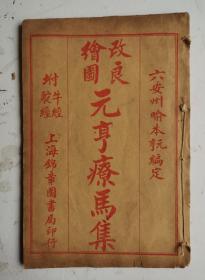 六安州喻本亨編定
改良
繪圖
元亨療馬集
附
牛經
駝經
上海錦章圖書局印行